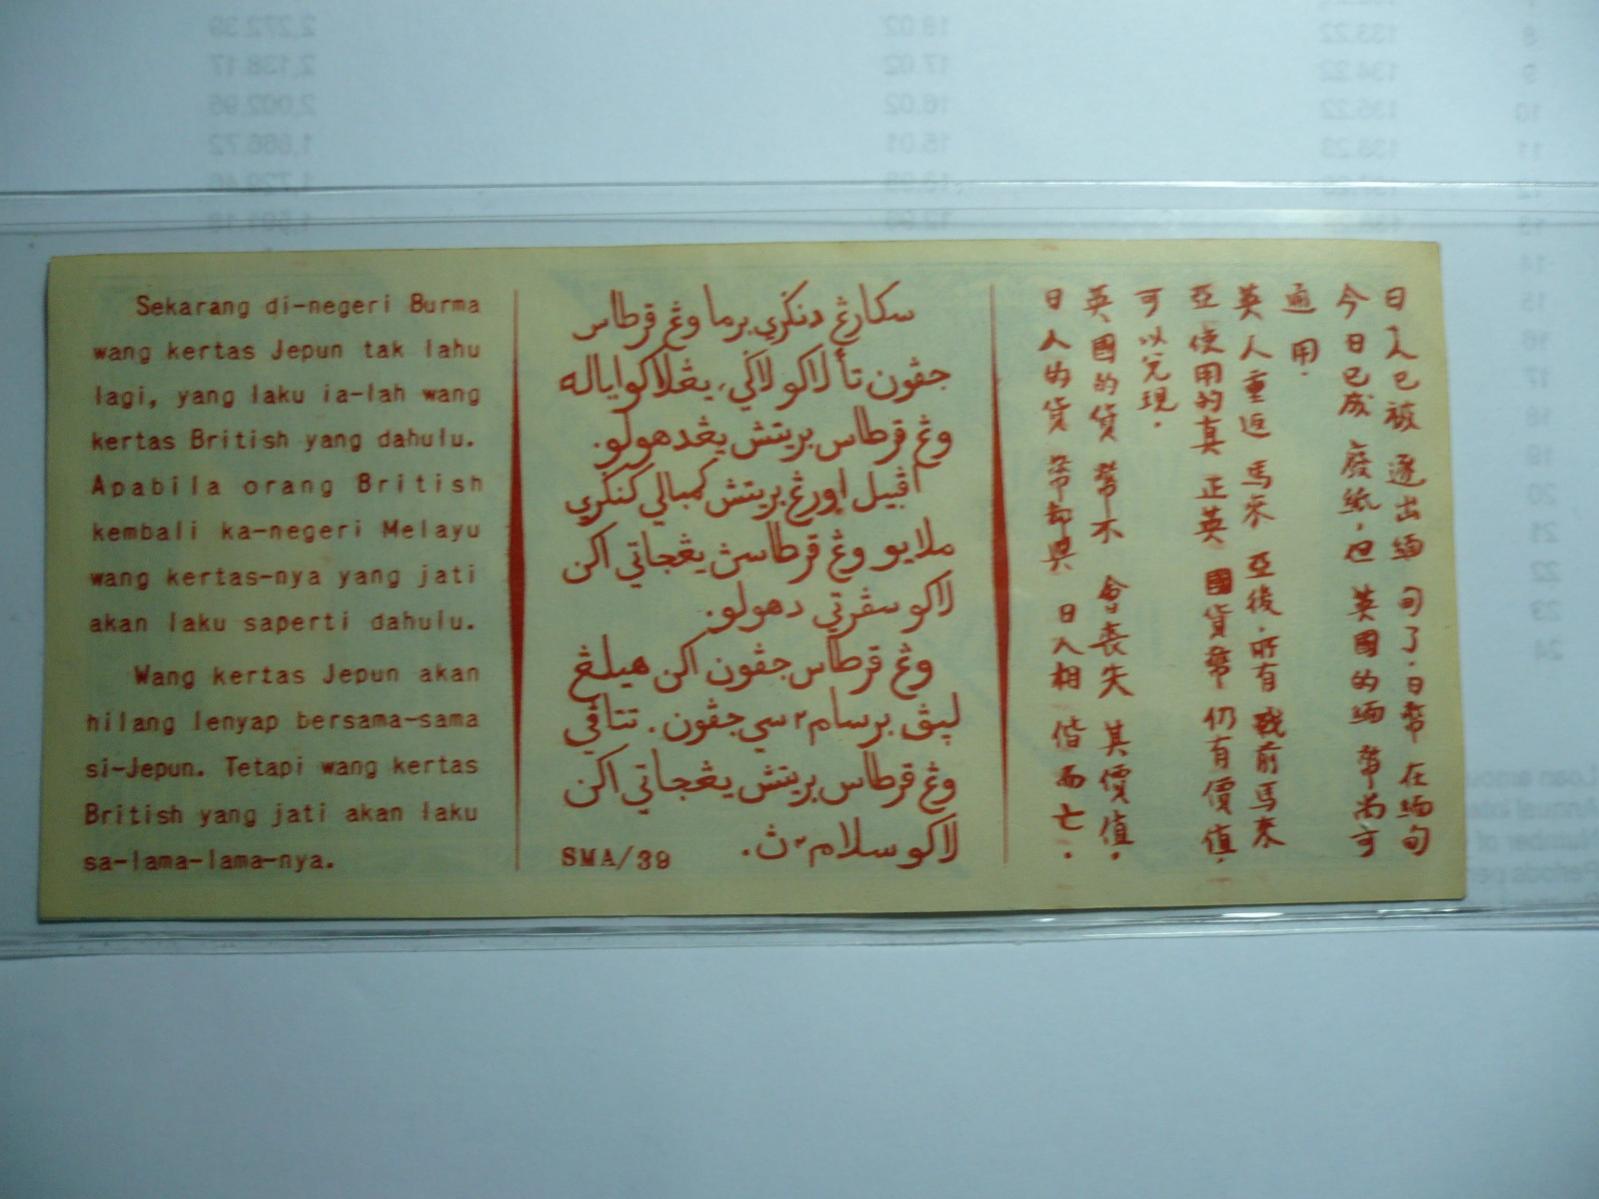 Sekarang di-negeri Burma
wang kertas Jepun tak lahu
lagi, yang laku ia-lah wang
kertas British yang dahulu.
Apabila orang British
kembali ka-negeri Melayu
wang kertas-nya yang jati
akan laku saperti dahulu.
Wang kertas Jepun akan
hilang lenyap bersama-sama
si-Jepun. Tetapi wang kertas
British yang jati akan laku
sa-lama-lama-nya.
سكارڠ دنكري برما وڠ قرطاس
جڤون تأ لاكو لاكي، يڠلاكو اياله
وڠ قرطاس بريتش يڠدهولو.
اڤبيل اورڠ بريتش كمبالي كنكري
ملايو وڠ قرطاسڽ يڠجاتي اكن
لاكو سڤرتي دهولو.
وڠ قرطاس جڤون اكن هيلڠ
لپڤ برسام٢ سي جڤون. تتاڤي
وڠ قرطاس بريتش يڠجاتي اكن
لاكو سلام٢ڽ.
SMA/39
日人已被逐出緬甸了.日幣在緬甸
今日已成廢紙,但英國的緬幣尚可
通用.
英人重返馬來亞後,所有戰前馬來
亞使用的真正英國貨幣仍有價值,
可以兌現.
英國的貨幣不會喪失其價值,
日人的貨幣却與日人相偕而亡.